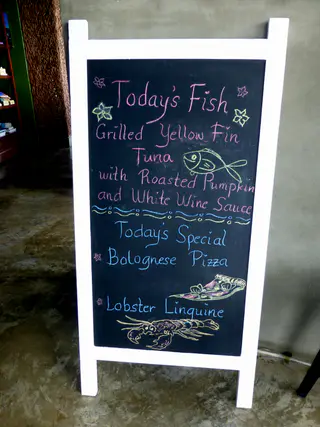 Today's Fish
Grilled Yellow Fin
Tuna
with Roasted Pumpkin
and White Wine Sauce
Today's Special
Bolognese Pizza
Lobster Linguine